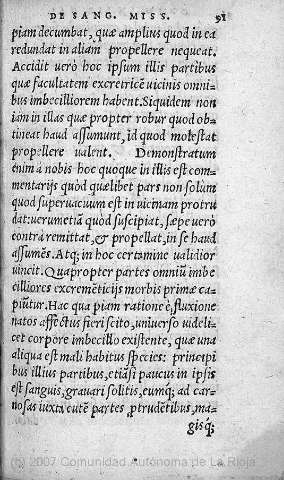 DE SANG. MISS. 91
piam decumbat, quæ amplius quod in ea
redundat in aliam propellere nequeat.
Accidit uerò hoc ipsum illis partibus
quæ facultatem excretricē uicinis omni-
bus imbecilliorem habent. Siquidem non
iam in illas quæ propter robur quod ob-
tineat haud assumunt, id quod molestat
propellere ualent. Demonstratum
enim à nobis hoc quoque in illis est com-
mentarijs quòd quælibet pars non solum
quod superuacuum est in uicinam protru
dat: uerumetiā quòd suscipiat, sæpe uerò
contrà remittat, & propellat, in se haud
assumēs. Atq; in hoc certamine ualidior
uincit. Quapropter partes omniū imbe
cilliores excremētitijs morbis primæ ca-
piūtur. Hac qua piam ratione è fluxione
natos affectus fieri scito, uniuerso uideli-
cet corpore imbecillo existente, quæ una
aliqua est mali habitus species: principi
bus illius partibus, etiāsi paucus in ipsis
est sanguis, grauari solitis, eumq; ad car-
nosas iuxtà eutē partes, ptrudētibus, ma-
gisq́;
(c) 2007 Comunidad Autónoma de La Rioja